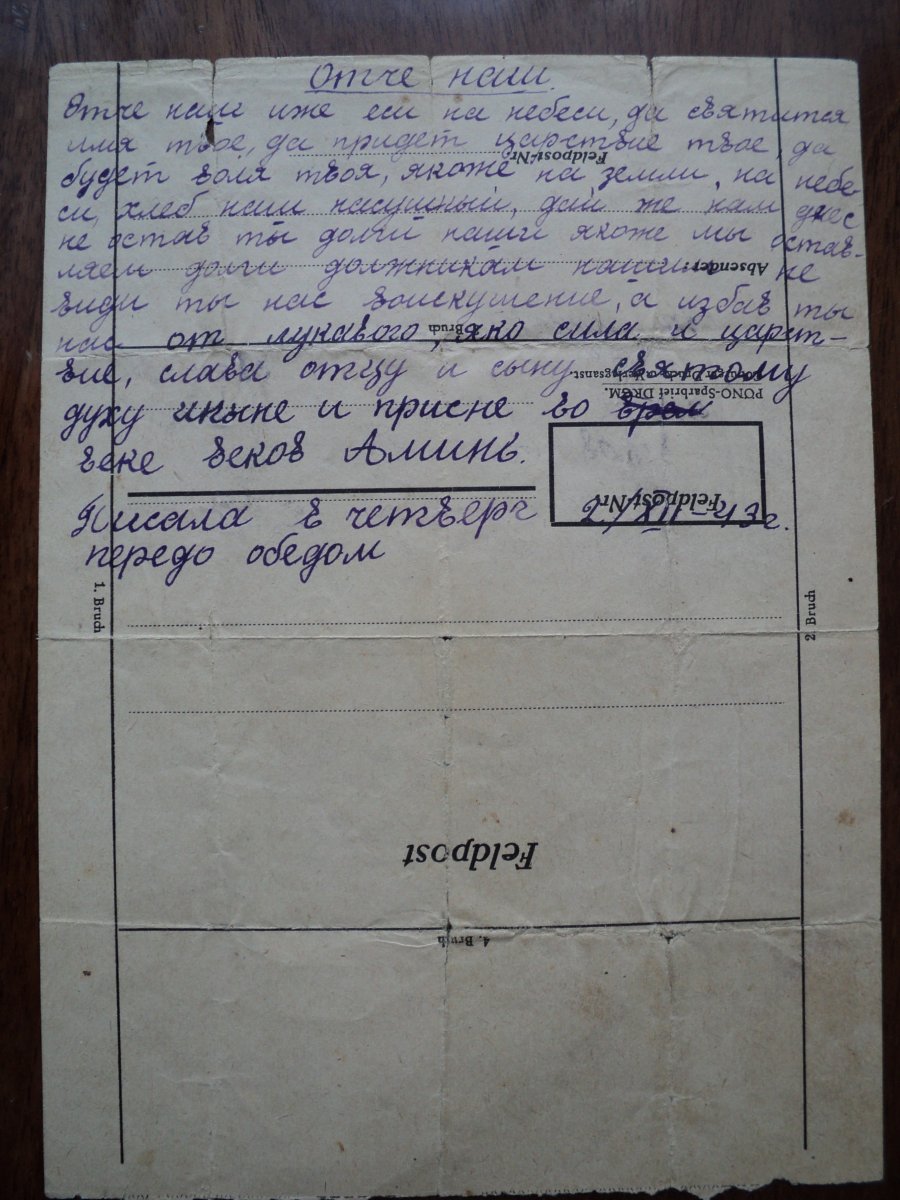 Отче наш.
Отче наш иже еси на небеси, да святится
имя твое, да придет царствие твое, да
Feldpost-Nr.
будет воля твоя, якоже на земли, на небе-
си, хлеб наш насушный, дай же нам днес
не остав ты долги наши якоже мы остав-
ляем долги должникам наши не
Absender:
види ты нас воискушение, а избав ты
нас от лукавого, яко сила и царст-
Bruch
вие, слава отцу и сыну святому
PUNO-Sparbrief DRGM.
духу иныне и присне во
веке веков Аминь.
Feldpost-Nr.
Писала в четверг 2/XII-43г.
передо обедом
1. Bruch
2. Bruch
Feldpost
4. Bruch